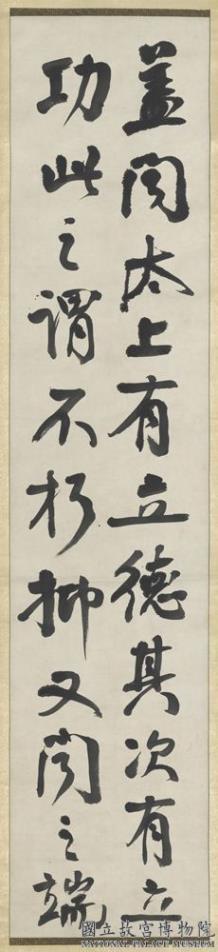 蓋聞太上有立德其次有立
功此之謂不朽抑又聞之端
國立故宮博物院
NATIONAL PALACE MUSEUM